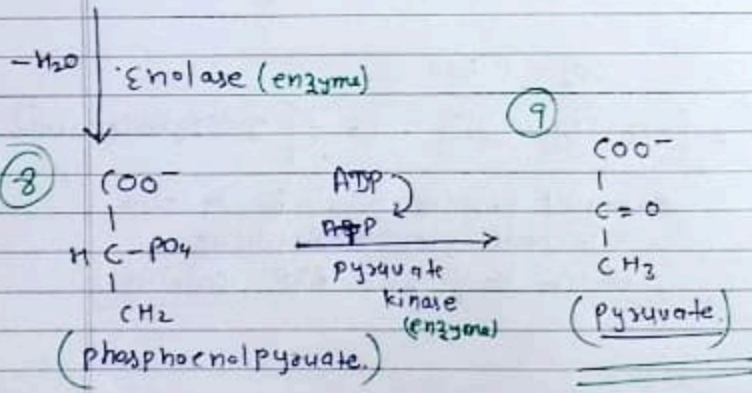 -H2O
Enolase (enzyme)
8
COO-
|
H C-PO4
|
CH2
(phosphoenolpyruate.)
ADP
pyruvate
kinase
(enzyme)
9
COO-
|
C=O
|
CH3
(pyruvate.)